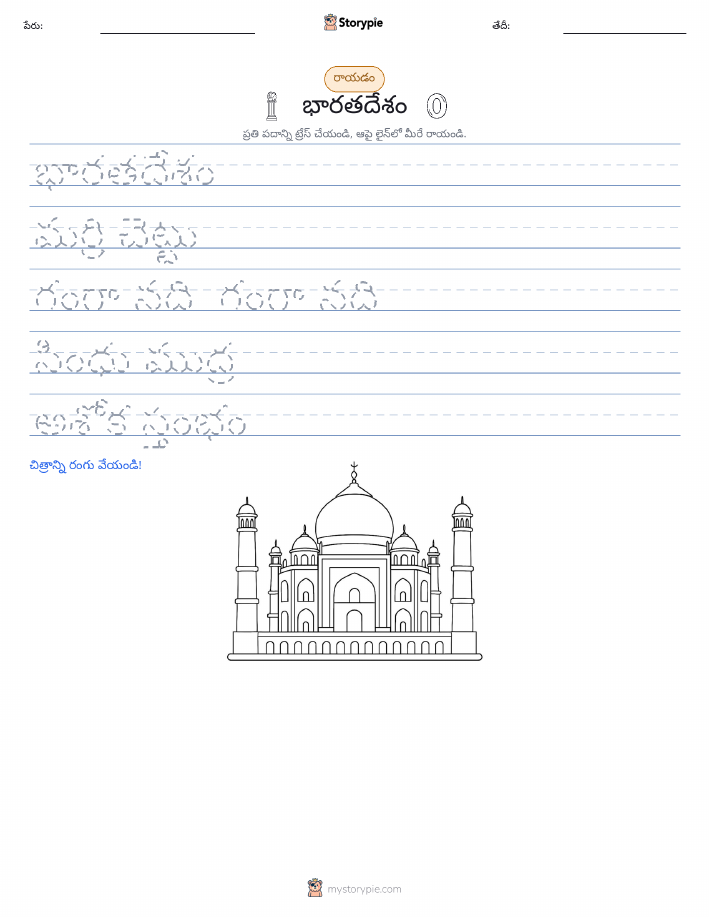 పేరు:
Storypie
తేదీ:
రాయడం
భారతదేశం
ప్రతి పదాన్ని ట్రేస్ చేయండి, ఆపై లైన్‌లో మీరే రాయండి.
భారతదేశం
మర్రి చెట్టు
గంగా నది గంగా నది
సింధు ముద్ర
అశోక స్తంభం
చిత్రాన్ని రంగు వేయండి!
mystorypie.com